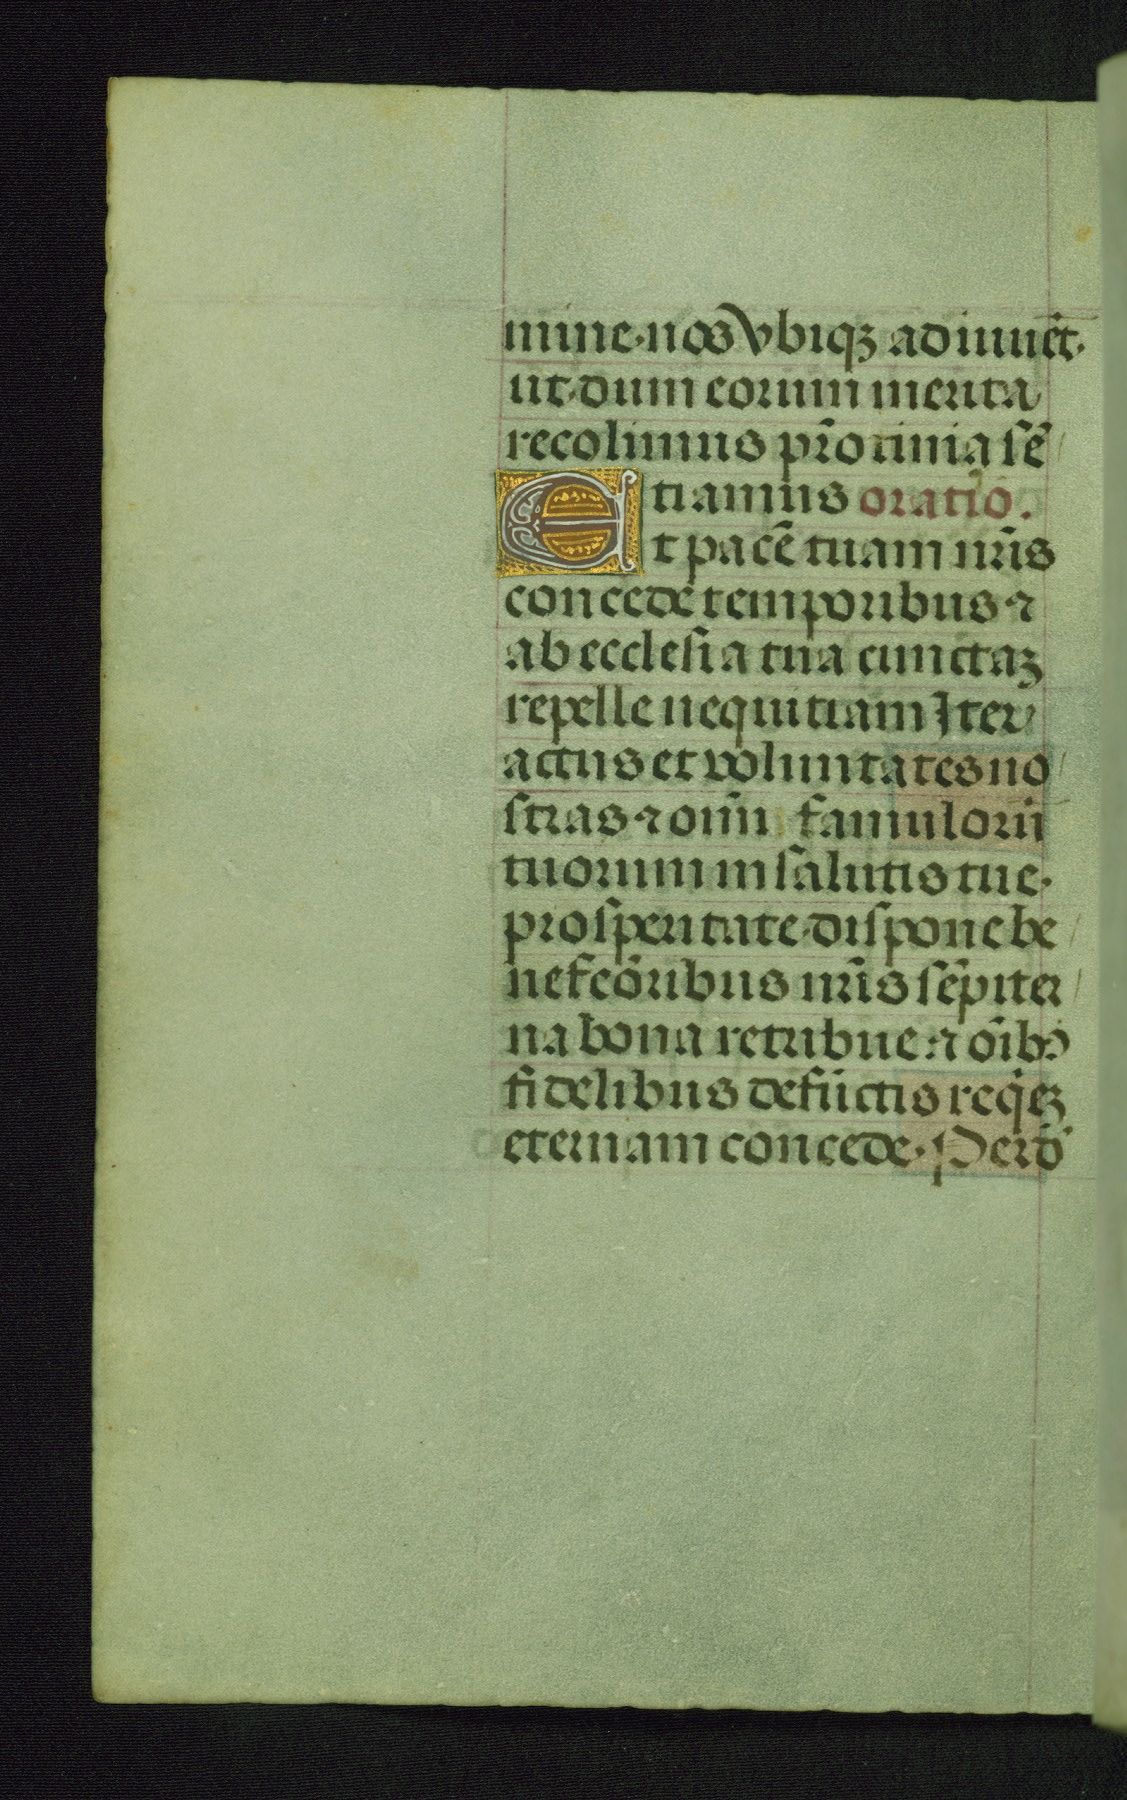 mine·nos vbiqꝫ adiuuēt·
ut·dum eorum merita
recolimus pr̄ocinia sē
tiamus oratio.
Et pacē tuam nr̄is
concede temporibus ⁊
ab ecclesia tua cunctaꝫ
repelle nequitiam Iter
actus et voluntates no
stras ⁊ om̄i famulorū
tuorum in salutis tue·
prosperitate·dispone be
nefcōribus nr̄is sēpiter
na bona retribue ⁊ oībꝯ
fidelibus defūctis req̄eꝫ
eternam concede· Per dō